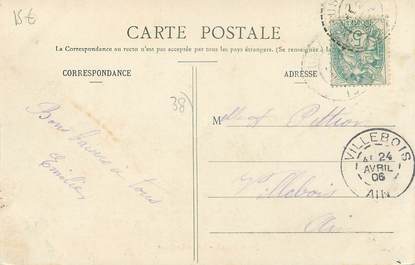 15€
CARTE POSTALE
La Correspondance au recto n'est pas acceptée par tous les pays étrangers. (Se renseigner à la
CORRESPONDANCE
ADRESSE
38
M
Bons baisers à tous
Emilie
Villebois
Ain
VILLEBOIS
24
AVRIL
06
AIN
5